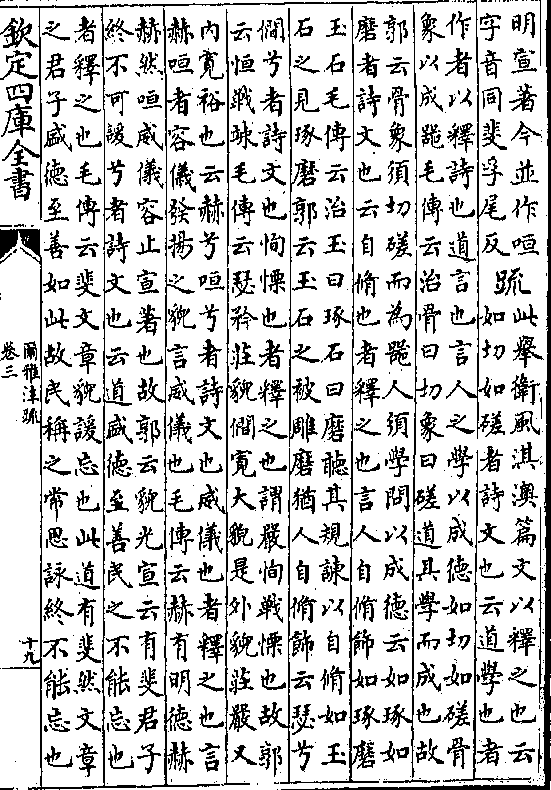 明宣著今並作咺
字音同斐孚尾反
疏
此舉衛風淇澳篇文以釋之也云
如切如磋者詩文也云道學也者
作者以釋詩也道言也言人之學以成德如切如磋骨
象以成器毛傳云治骨曰切象曰磋道其學而成也故
郭云骨象須切磋而為器人須學問以成德云如琢如
磨者詩文也云自脩也者釋之也言人自脩飾如琢磨
玉石毛傳云治玉曰琢石曰磨聽其規諫以自脩如玉
石之見琢磨郭云玉石之被雕磨猶人自脩飾云瑟兮
僩兮者詩文也恂慄也者釋之也謂嚴恂戰慄也故郭
云恒戰竦毛傳云瑟矜莊貌僩寬大貌是外貌莊嚴又
內寬裕也云赫兮咺兮者詩文也威儀也者釋之也言
赫咺者容儀發揚之貌言威儀也毛傳云赫有明德赫
赫然咺威儀容止宣著也故郭云貌光宣云有斐君子
終不可諼兮者詩文也云道盛德至善民之不能忘也
者釋之也毛傳云斐文章貌諼忘也此道有斐然文章
之君子盛德至善如此故民稱之常思詠終不能忘也
欽定四庫全書
爾雅注疏
卷三
十九